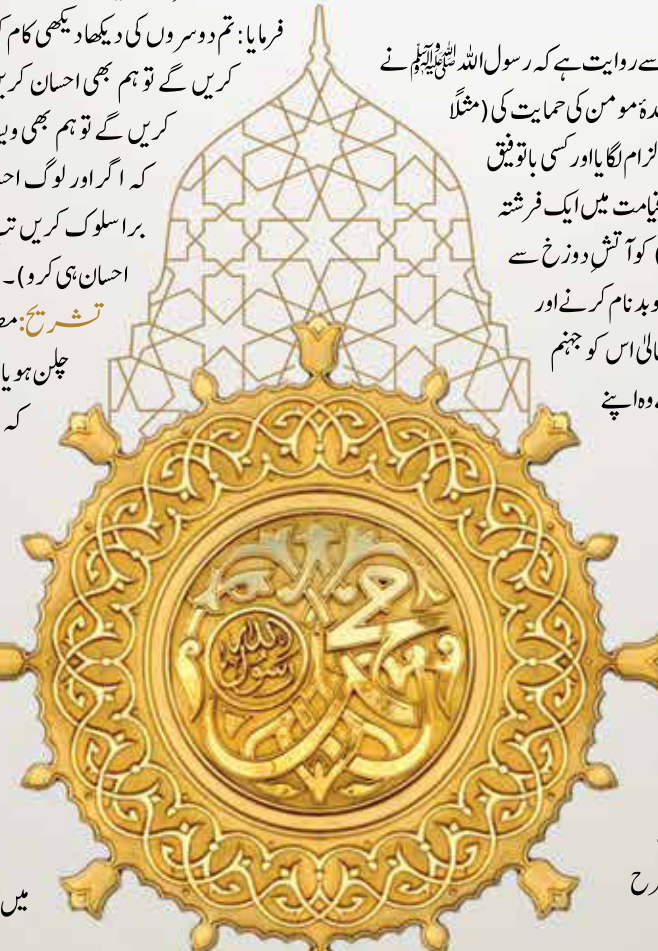 سے روایت ہے کہ رسول اللہ ﷺ نے
مومن کی حمایت کی (مثلاً
الزام لگایا اور کسی باتوفیق
قیامت میں ایک فرشتہ
کو آتشِ دوزخ سے
بدنام کرنے اور
اس کو جہنم
وہ اپنے
رح
فرمایا: تم دوسروں کی دیکھا دیکھی کام
کریں گے تو ہم بھی احسان
کریں گے تو ہم بھی
کہ اگر اور لوگ
برا سلوک کریں
احسان ہی کرو)۔
تشریح:
چلن ہو یا
کہ
میں
محمد
رسول الله